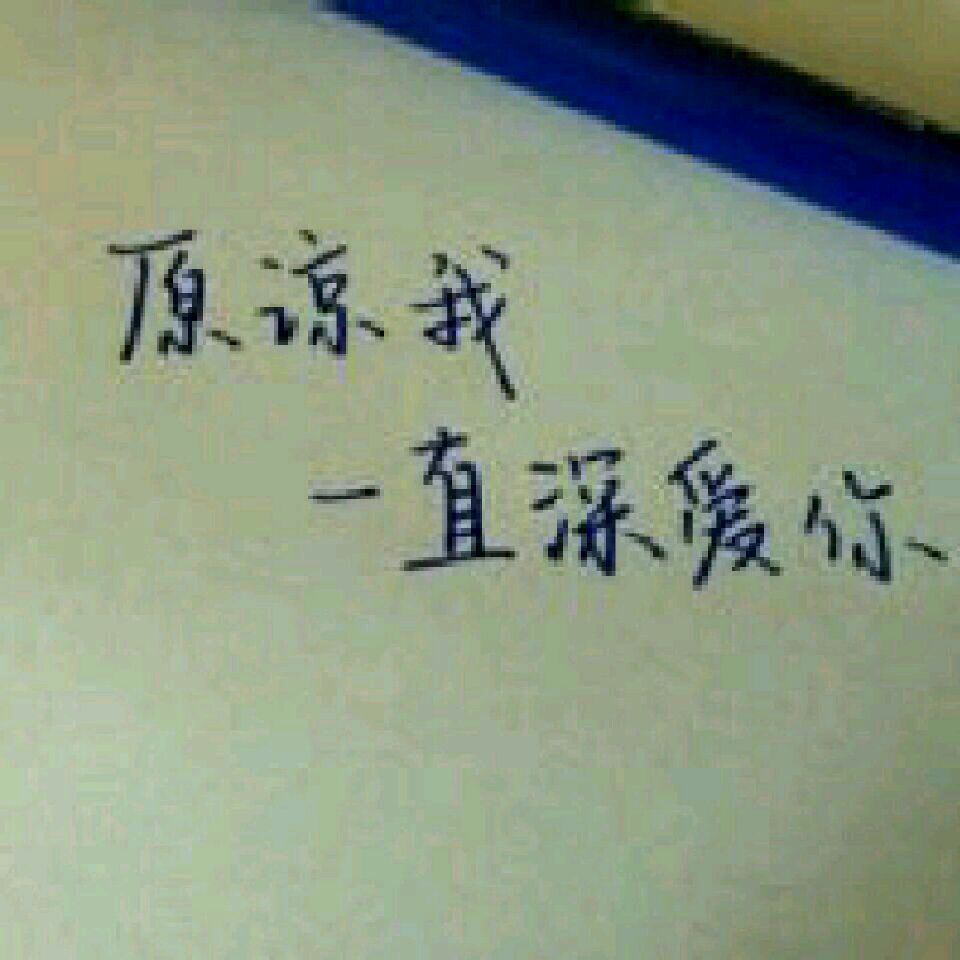 原谅我
一直深爱你